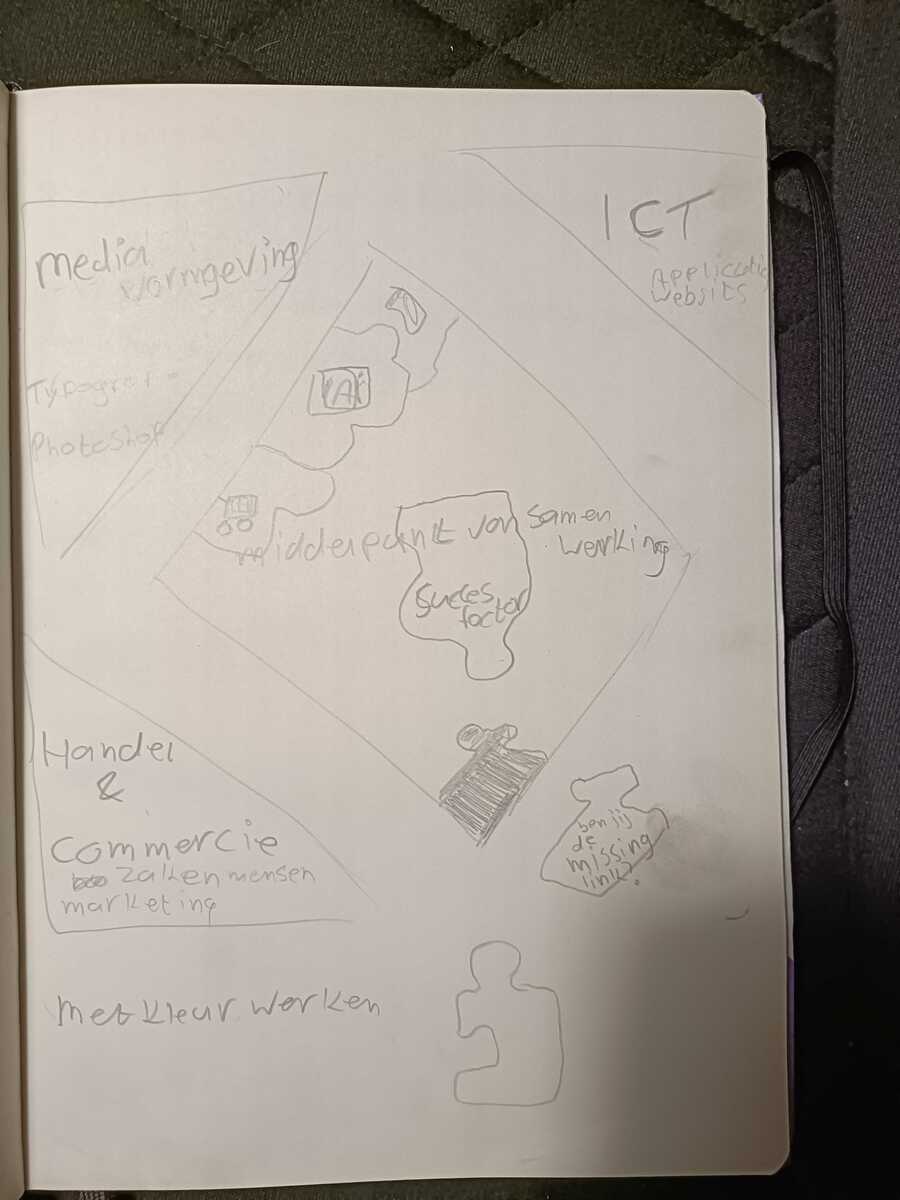 media
vormgeving
ICT
Applicatie
websits
Typogra
Photoshop
A
middelpunt van samen
werking
Succes
factor
Handel
&
Commercie
Zakenmensen
marketing
ben jij
de
missing
link?
met kleur werken